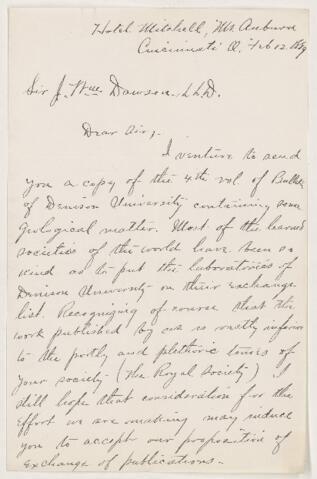 Hotel Mitchell, Mt. Auburn
Cincinnati O. Feb 12 1889
Sir J. Wm. Dawson, LLD.
Dear Sir;
I venture to send
you a copy of the 4th vol. of Bullet
of Denison University containing some
geological matter. Most of the learned
societies of the world have been so
kind as to put the laboratories of
Denison University on their exchange
list. Recognizing of course that the
work published by us is vastly inferior
to the portly and plethoric tomes of
your society (the Royal Society) I
still hope that consideration for the
effort we are making may induce
you to accept our proposition of
exchange of publications.